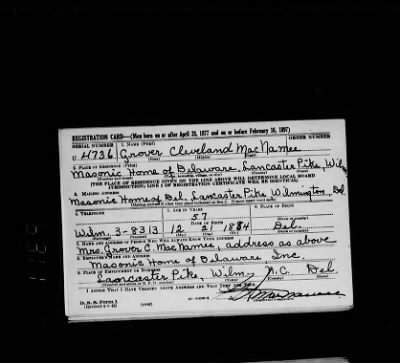 REGISTRATION CARD—(Men born on or after April 28, 1877 and on or before February 16, 1897)
SERIAL NUMBER 1. NAME (Print) ORDER NUMBER
U 4736 Grover Cleveland MacNamee
(First) (Middle) (Last)
2. PLACE OF RESIDENCE (Print)
Masonic Home of Delaware, Lancaster Pike, Wilm
[THE PLACE OF RESIDENCE GIVEN ON THE LINE ABOVE WILL DETERMINE LOCAL BOARD
JURISDICTION; LINE 2 OF REGISTRATION CERTIFICATE WILL BE IDENTICAL]
3. MAILING ADDRESS
Masonic Home of Del, Lancaster Pike Wilmington, Del
4. TELEPHONE 5. AGE IN YEARS 6. PLACE OF BIRTH
57
DATE OF BIRTH
Wilm. 3-8313 12 21 1884 Del.
7. NAME AND ADDRESS OF PERSON WHO WILL ALWAYS KNOW YOUR ADDRESS
Mrs. Grover C. MacNamee, address as above
8. EMPLOYER'S NAME AND ADDRESS
Masonic Home of Delaware Inc.
9. PLACE OF EMPLOYMENT OR BUSINESS
Lancaster Pike, Wilm. N.C. Del.
I AFFIRM THAT I HAVE VERIFIED ABOVE ANSWERS AND THAT THEY ARE TRUE.
D. S. S. Form 1
(Revised 4-1-42)